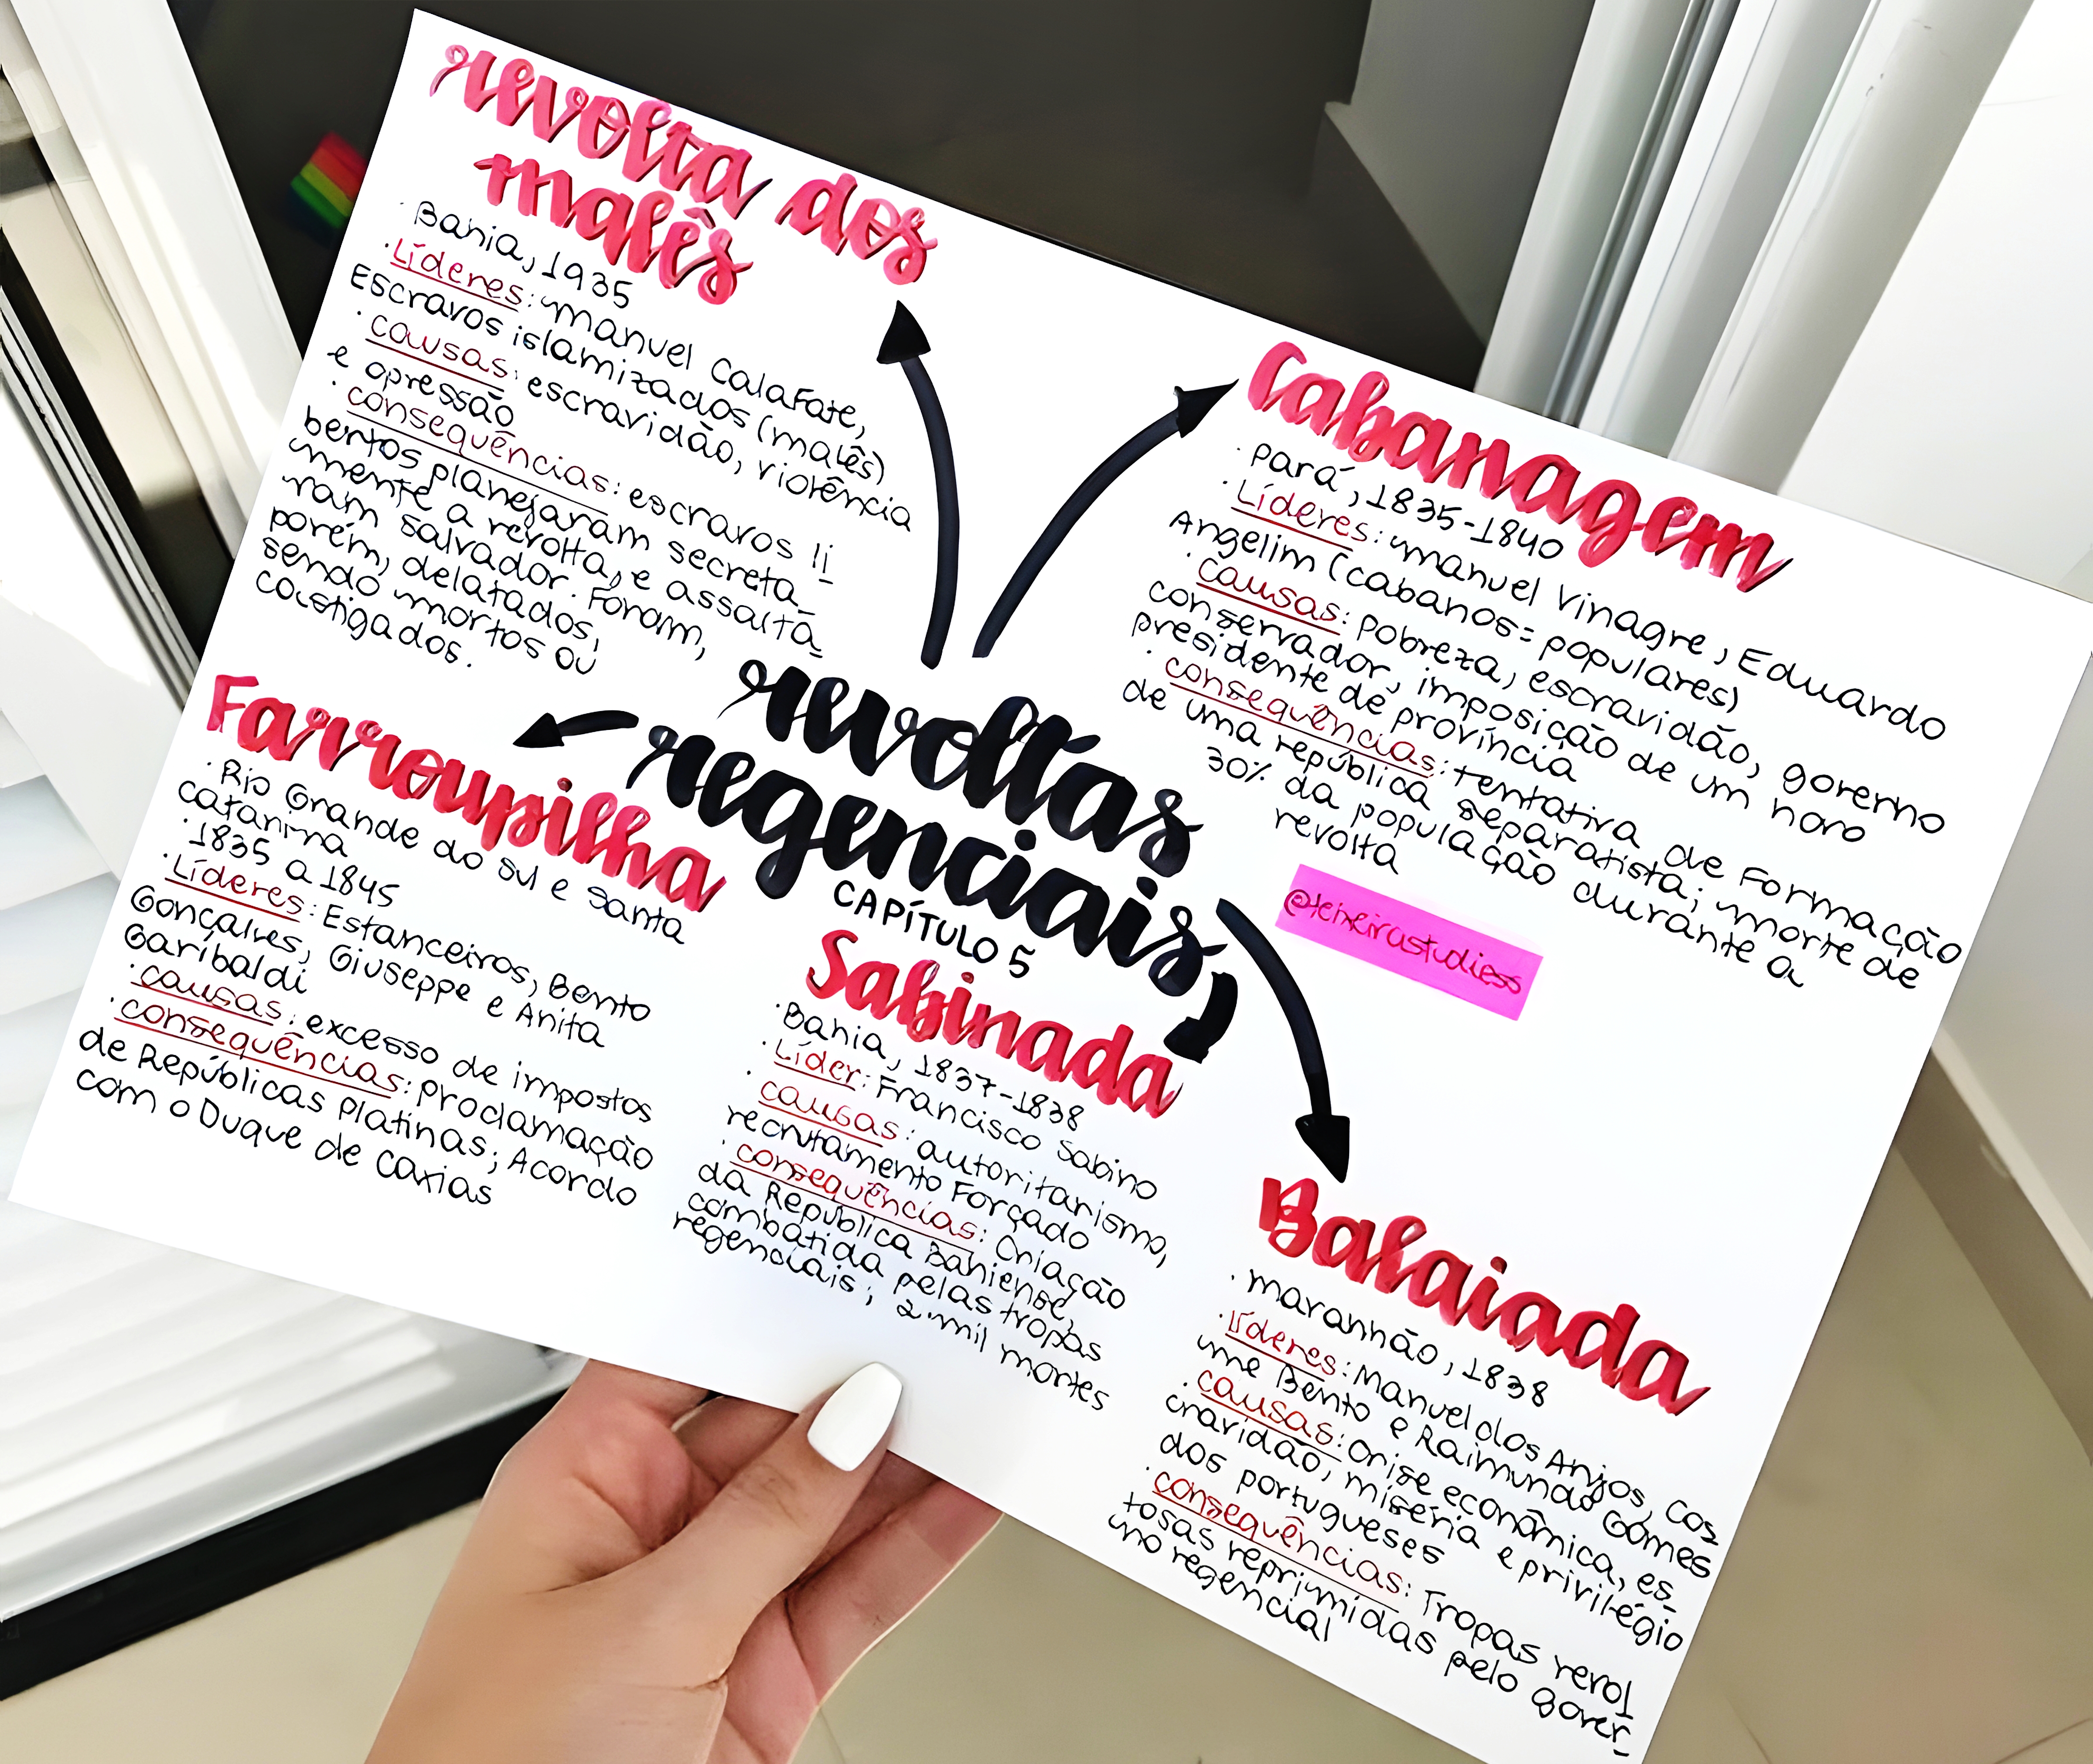 revolta dos
malês
· Bahia, 1935
· Líderes: manuel Calafate,
Escravos islamizados (malês)
· causas: escravidão, violência
e opressão
· consequências: escravos li_
bertos planejaram secreta_
mente a revolta, e assalta_
ram salvador. Foram,
porém, delatados,
sendo mortos ou
castigados.
Cabanagem
· Pará, 1835-1840
· Líderes: manuel Vinagre, Eduardo
Angelim (cabanos= populares)
· causas: Pobreza, escravidão, governo
conservador, imposição de um novo
presidente de província
· consequências: tentativa de Formação
de uma república separatista; morte de
30% da população durante a
revolta
@teixeirastudiess
revoltas
regenciais
CAPÍTULO 5
Farroupilha
· Rio Grande do sul e santa
catarina
· 1835 a 1845
· Líderes: Estanceiros, Bento
Gonçalves, Giuseppe e Anita
Garibaldi
· causas: excesso de impostos
· consequências: proclamação
de Repúblicas Platinas; Acordo
com o Duque de Caxias
Sabinada
· Bahia, 1837-1838
· Líder: Francisco Sabino
· causas: autoritarismo,
recrutamento Forçado
· consequências: Criação
da República Bahiense,
combatida pelas tropas
regenciais; 2 mil mortes
Balaiada
· maranhão, 1838
· líderes: Manuel dos Anjos, Cos_
me Bento e Raimundo Gomes
· causas: Crise econômica, es_
cravidão, miséria e privilégio
dos portugueses
· consequências: Tropas revol_
tosas reprimidas pelo gover_
no regencial